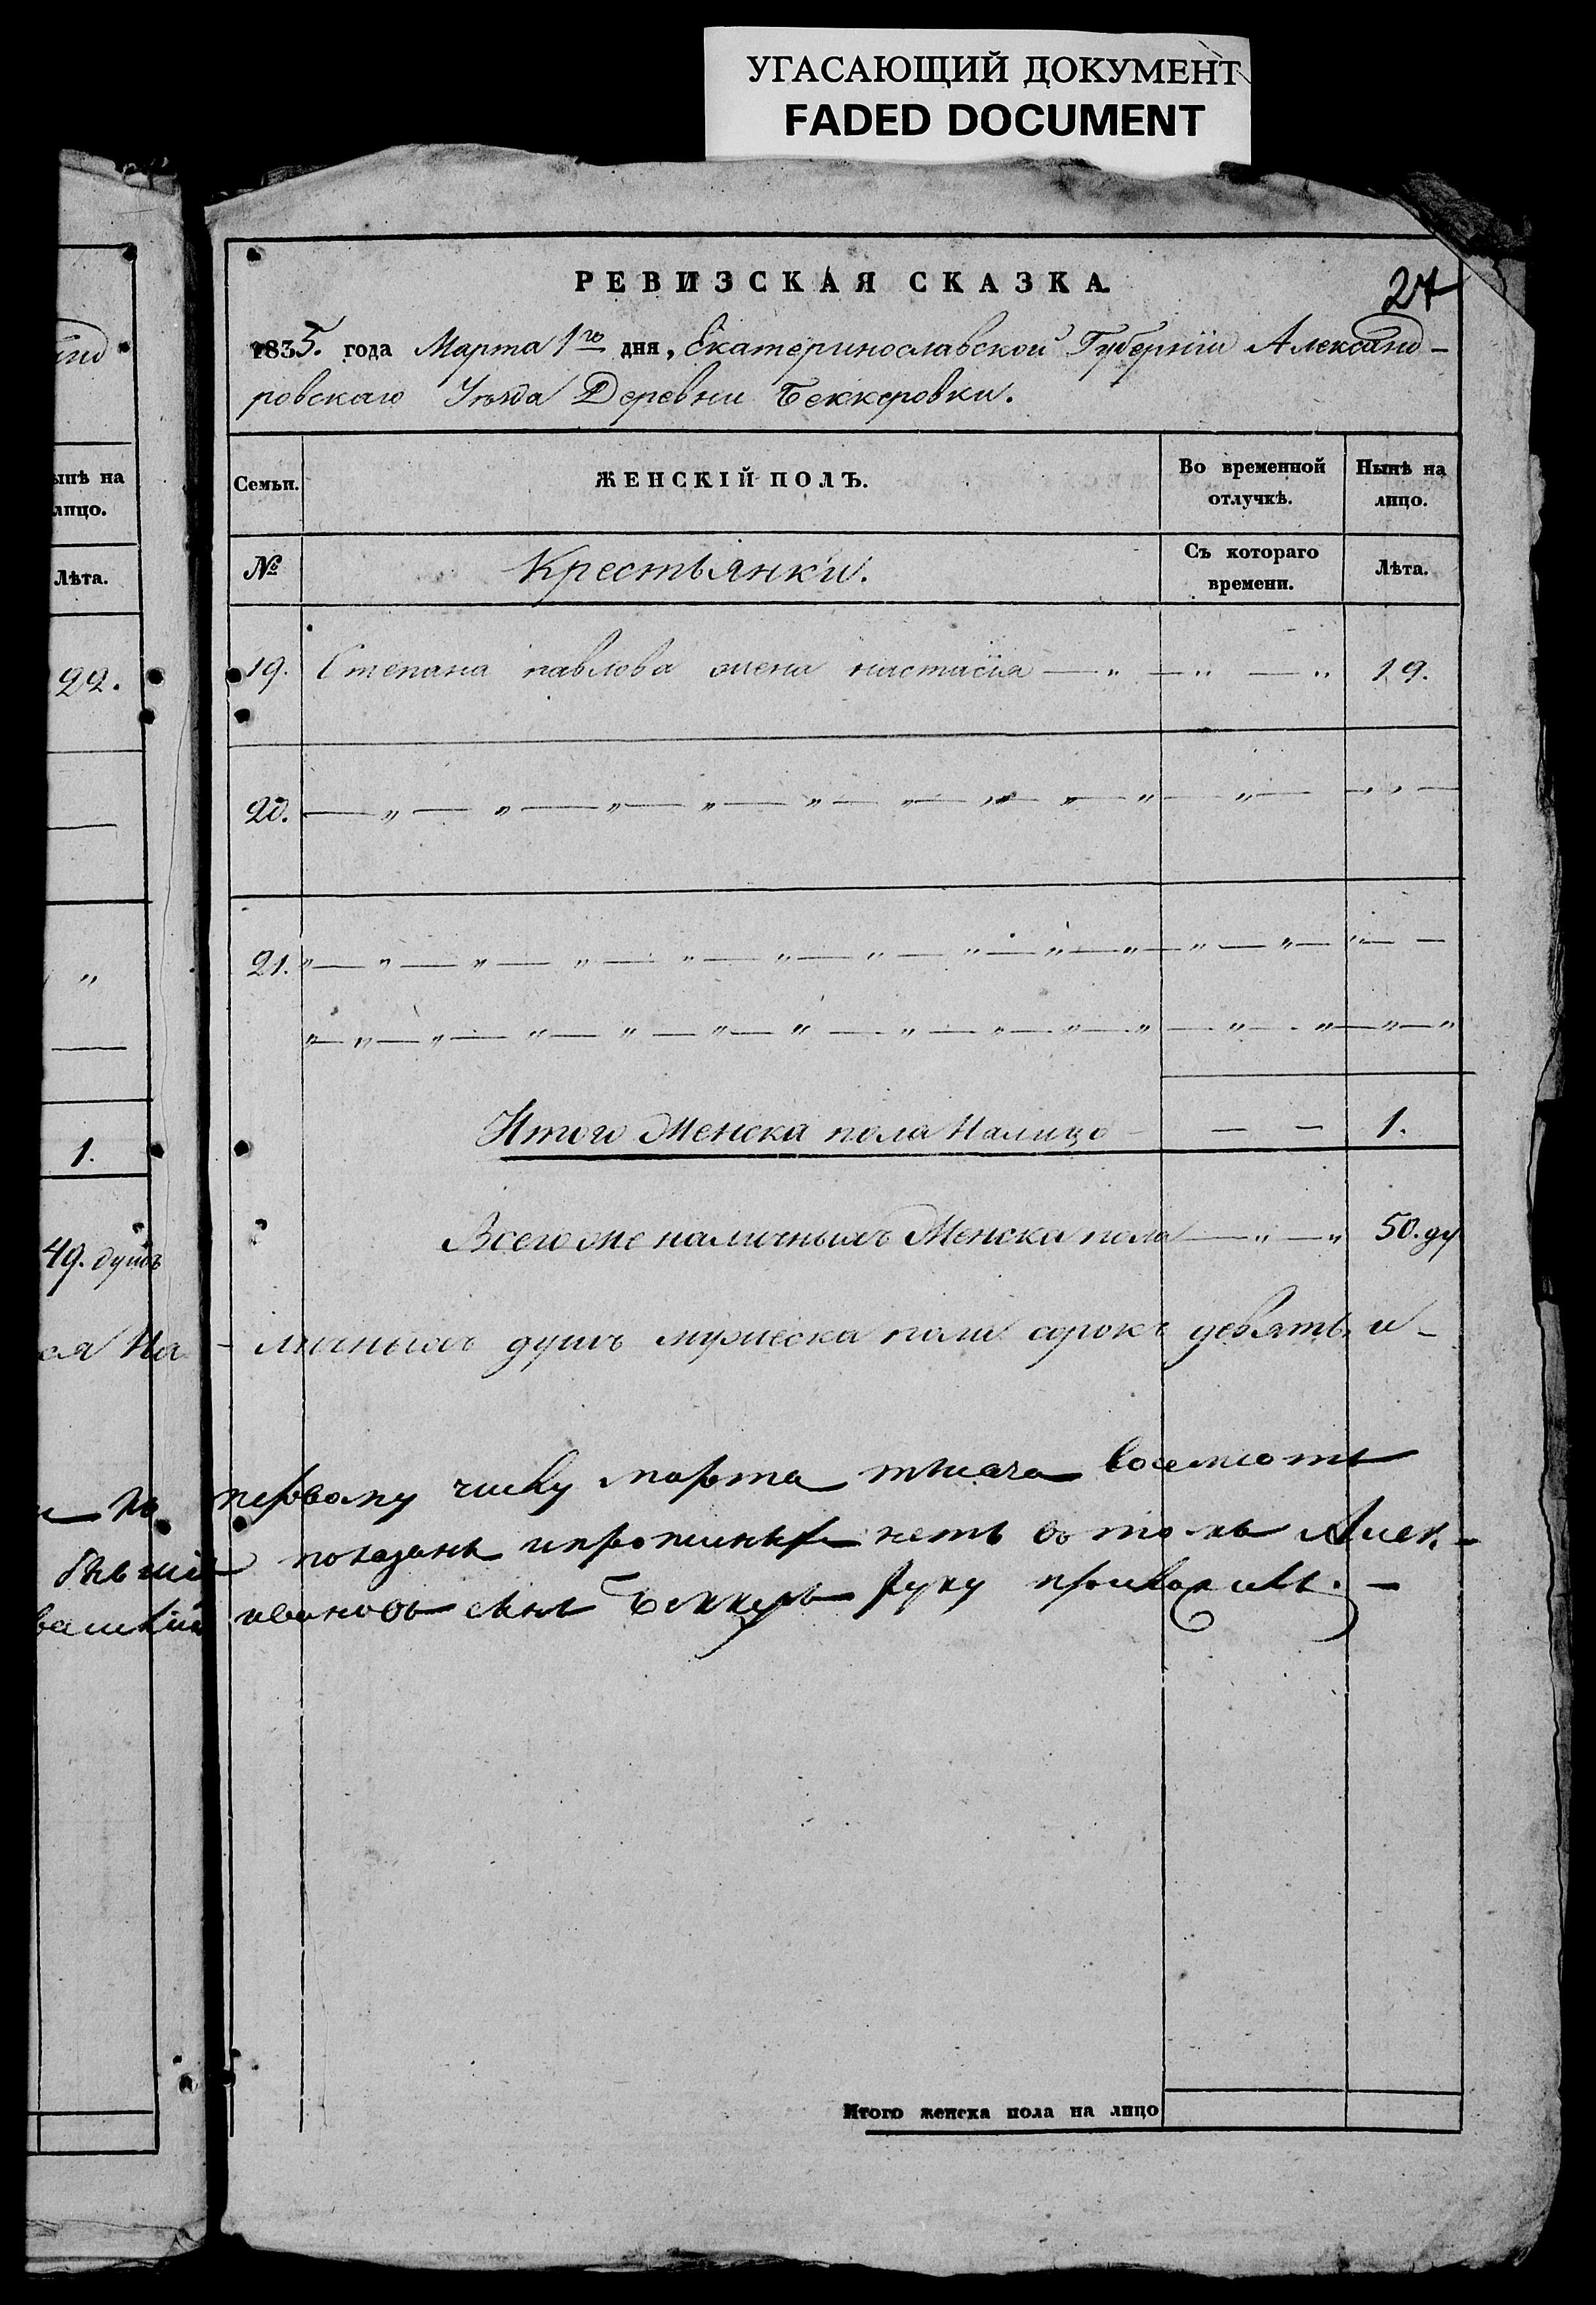 УГАСАЮЩИЙ ДОКУМЕНТ
FADED DOCUMENT
РЕВИЗСКАЯ СКАЗКА.
27
1835. года Марта 1го дня, Екатеринославской Губернiи Александ-
ровскаго Уѣзда Деревни Беккеровки.
ынѣ на
лицо.
Лѣта.
22.
"
1.
49. душъ
ся На
Семьи.
ЖЕНСКIЙ ПОЛЪ.
Во временной
отлучкѣ.
Нынѣ на
лицо.
№
Крестьянки.
Съ котораго
времени.
Лѣта.
19. Степана павлова жена настасiя — " — " — " 19.
20. — " — " — " — " — " — " — " — " — " — " — " " —
21. " — " — " — " — " — " — " — " — " — " — " — " — " — —
" — " — " — " — " — " — " — " — " — " — " — " — " — " — "
Итого Женска пола Налицо — — 1.
Всего же наличныхъ Женска пола — " — " 50. ду
- личныхъ душъ мужеска пола сорокъ девять и -
первому числу марта тысяча восемсотъ
показанъ нетъ въ томъ Алек-
ивановъ сынъ Беккеръ руку приложилъ. —
Итого женска пола на лицо